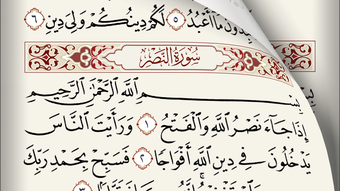 ـبِدُونَ مَآ أَعْبُدُ ٥ لَكُمْ دِينُكُمْ وَلِىَ دِينِ ٦
سُورَةُ النَّصْرِ
بِسْمِ ٱللَّهِ ٱلرَّحْمَٰنِ ٱلرَّحِيمِ
إِذَا جَآءَ نَصْرُ ٱللَّهِ وَٱلْفَتْحُ ١ وَرَأَيْتَ ٱلنَّاسَ
يَدْخُلُونَ فِى دِينِ ٱللَّهِ أَفْوَاجًا ٢ فَسَبِّحْ بِحَمْدِ رَبِّكَ